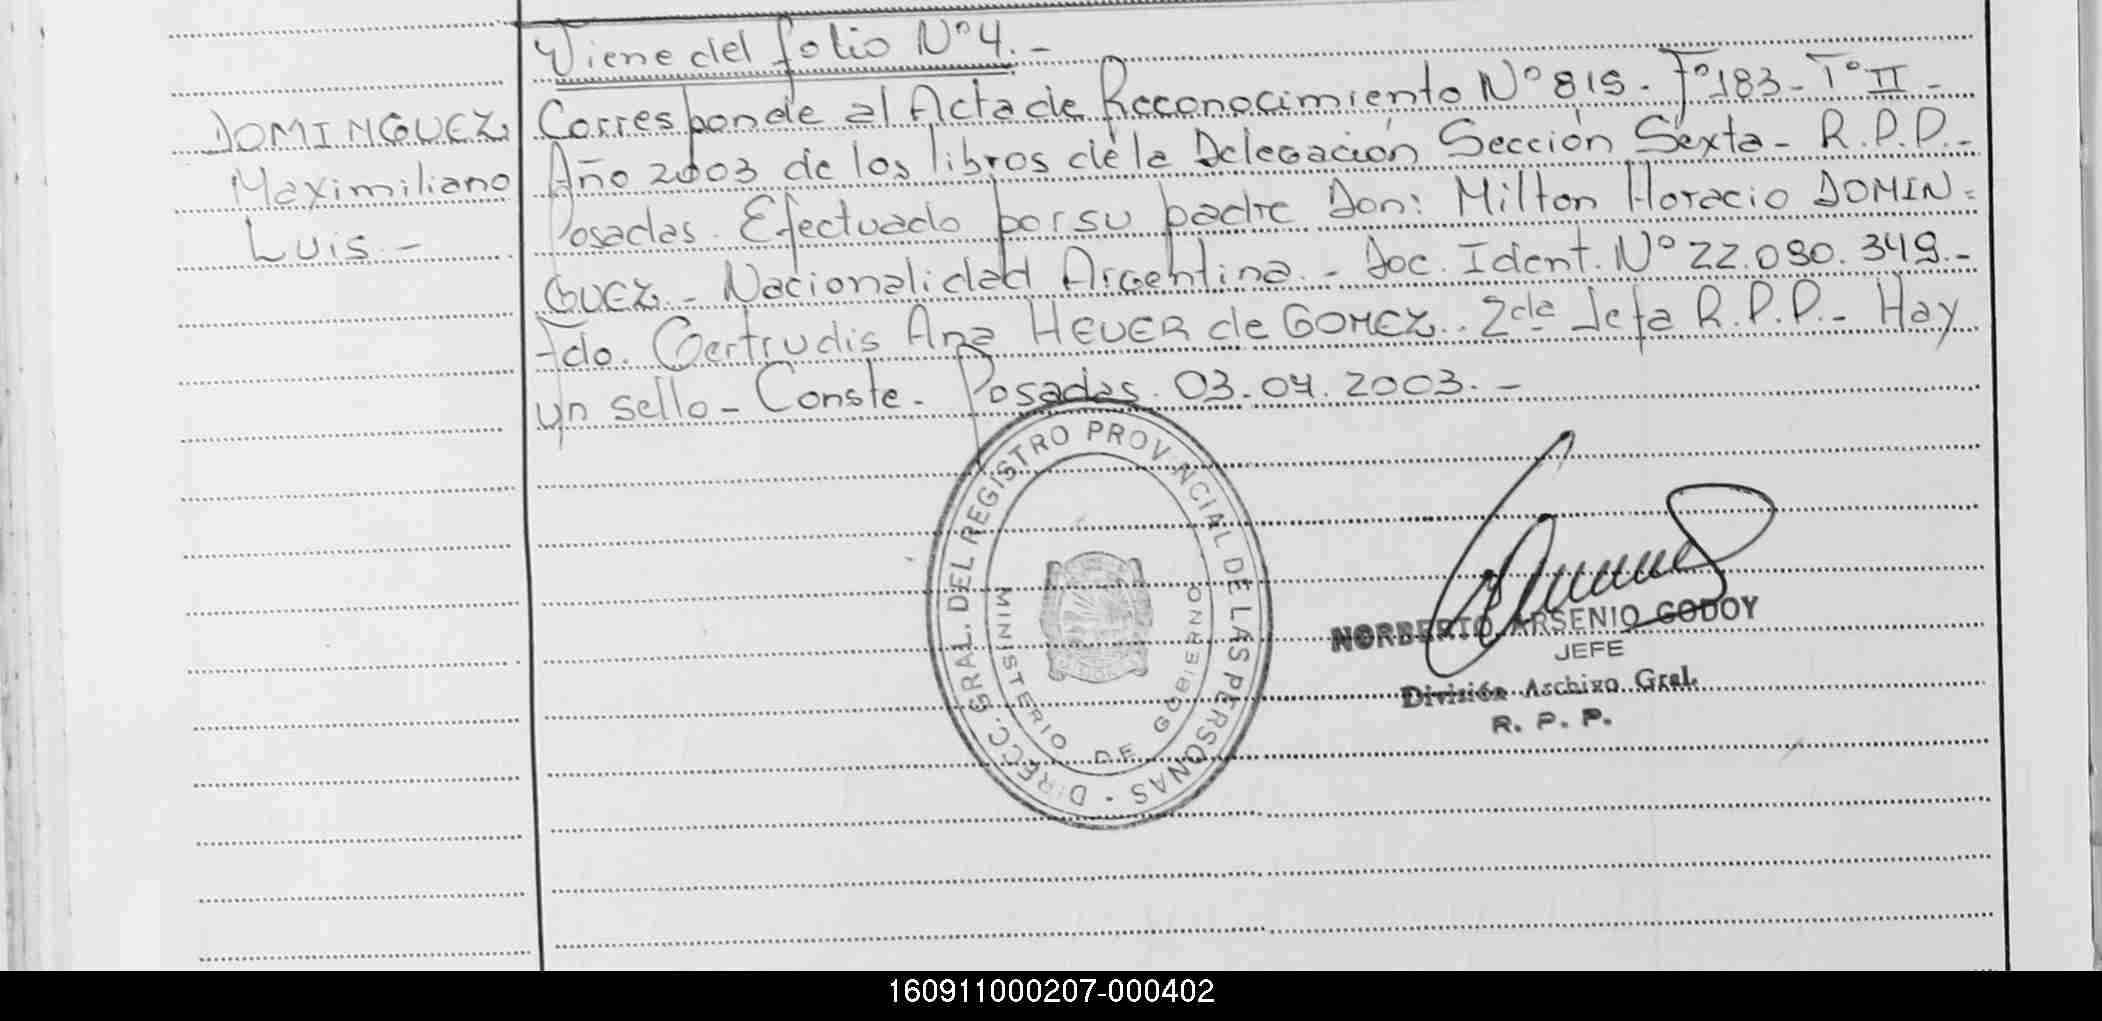 Viene del folio Nº 4.-
DOMINGUEZ,
Maximiliano
Luis.-
Corresponde al Acta de Reconocimiento Nº 815. Fº 183 - Tº II -
Año 2003 de los libros de la Delegación Sección Sexta - R.P.P.-
Posadas. Efectuado por su padre Don: Milton Horacio DOMIN=
GUEZ.- Nacionalidad Argentina.- Doc. Ident. Nº 22.080.349.-
Fdo. Gertrudis Ana HEUER de GOMEZ. 2da Jefa R.P.P.- Hay
un sello - Conste. Posadas. 03.04.2003.-
DIRECC. GRAL. DEL REGISTRO PROVINCIAL DE LAS PERSONAS -
MINISTERIO DE GOBIERNO
NORBERTO ARSENIO GODOY
JEFE
División Archivo Gral.
R. P. P.
160911000207-000402